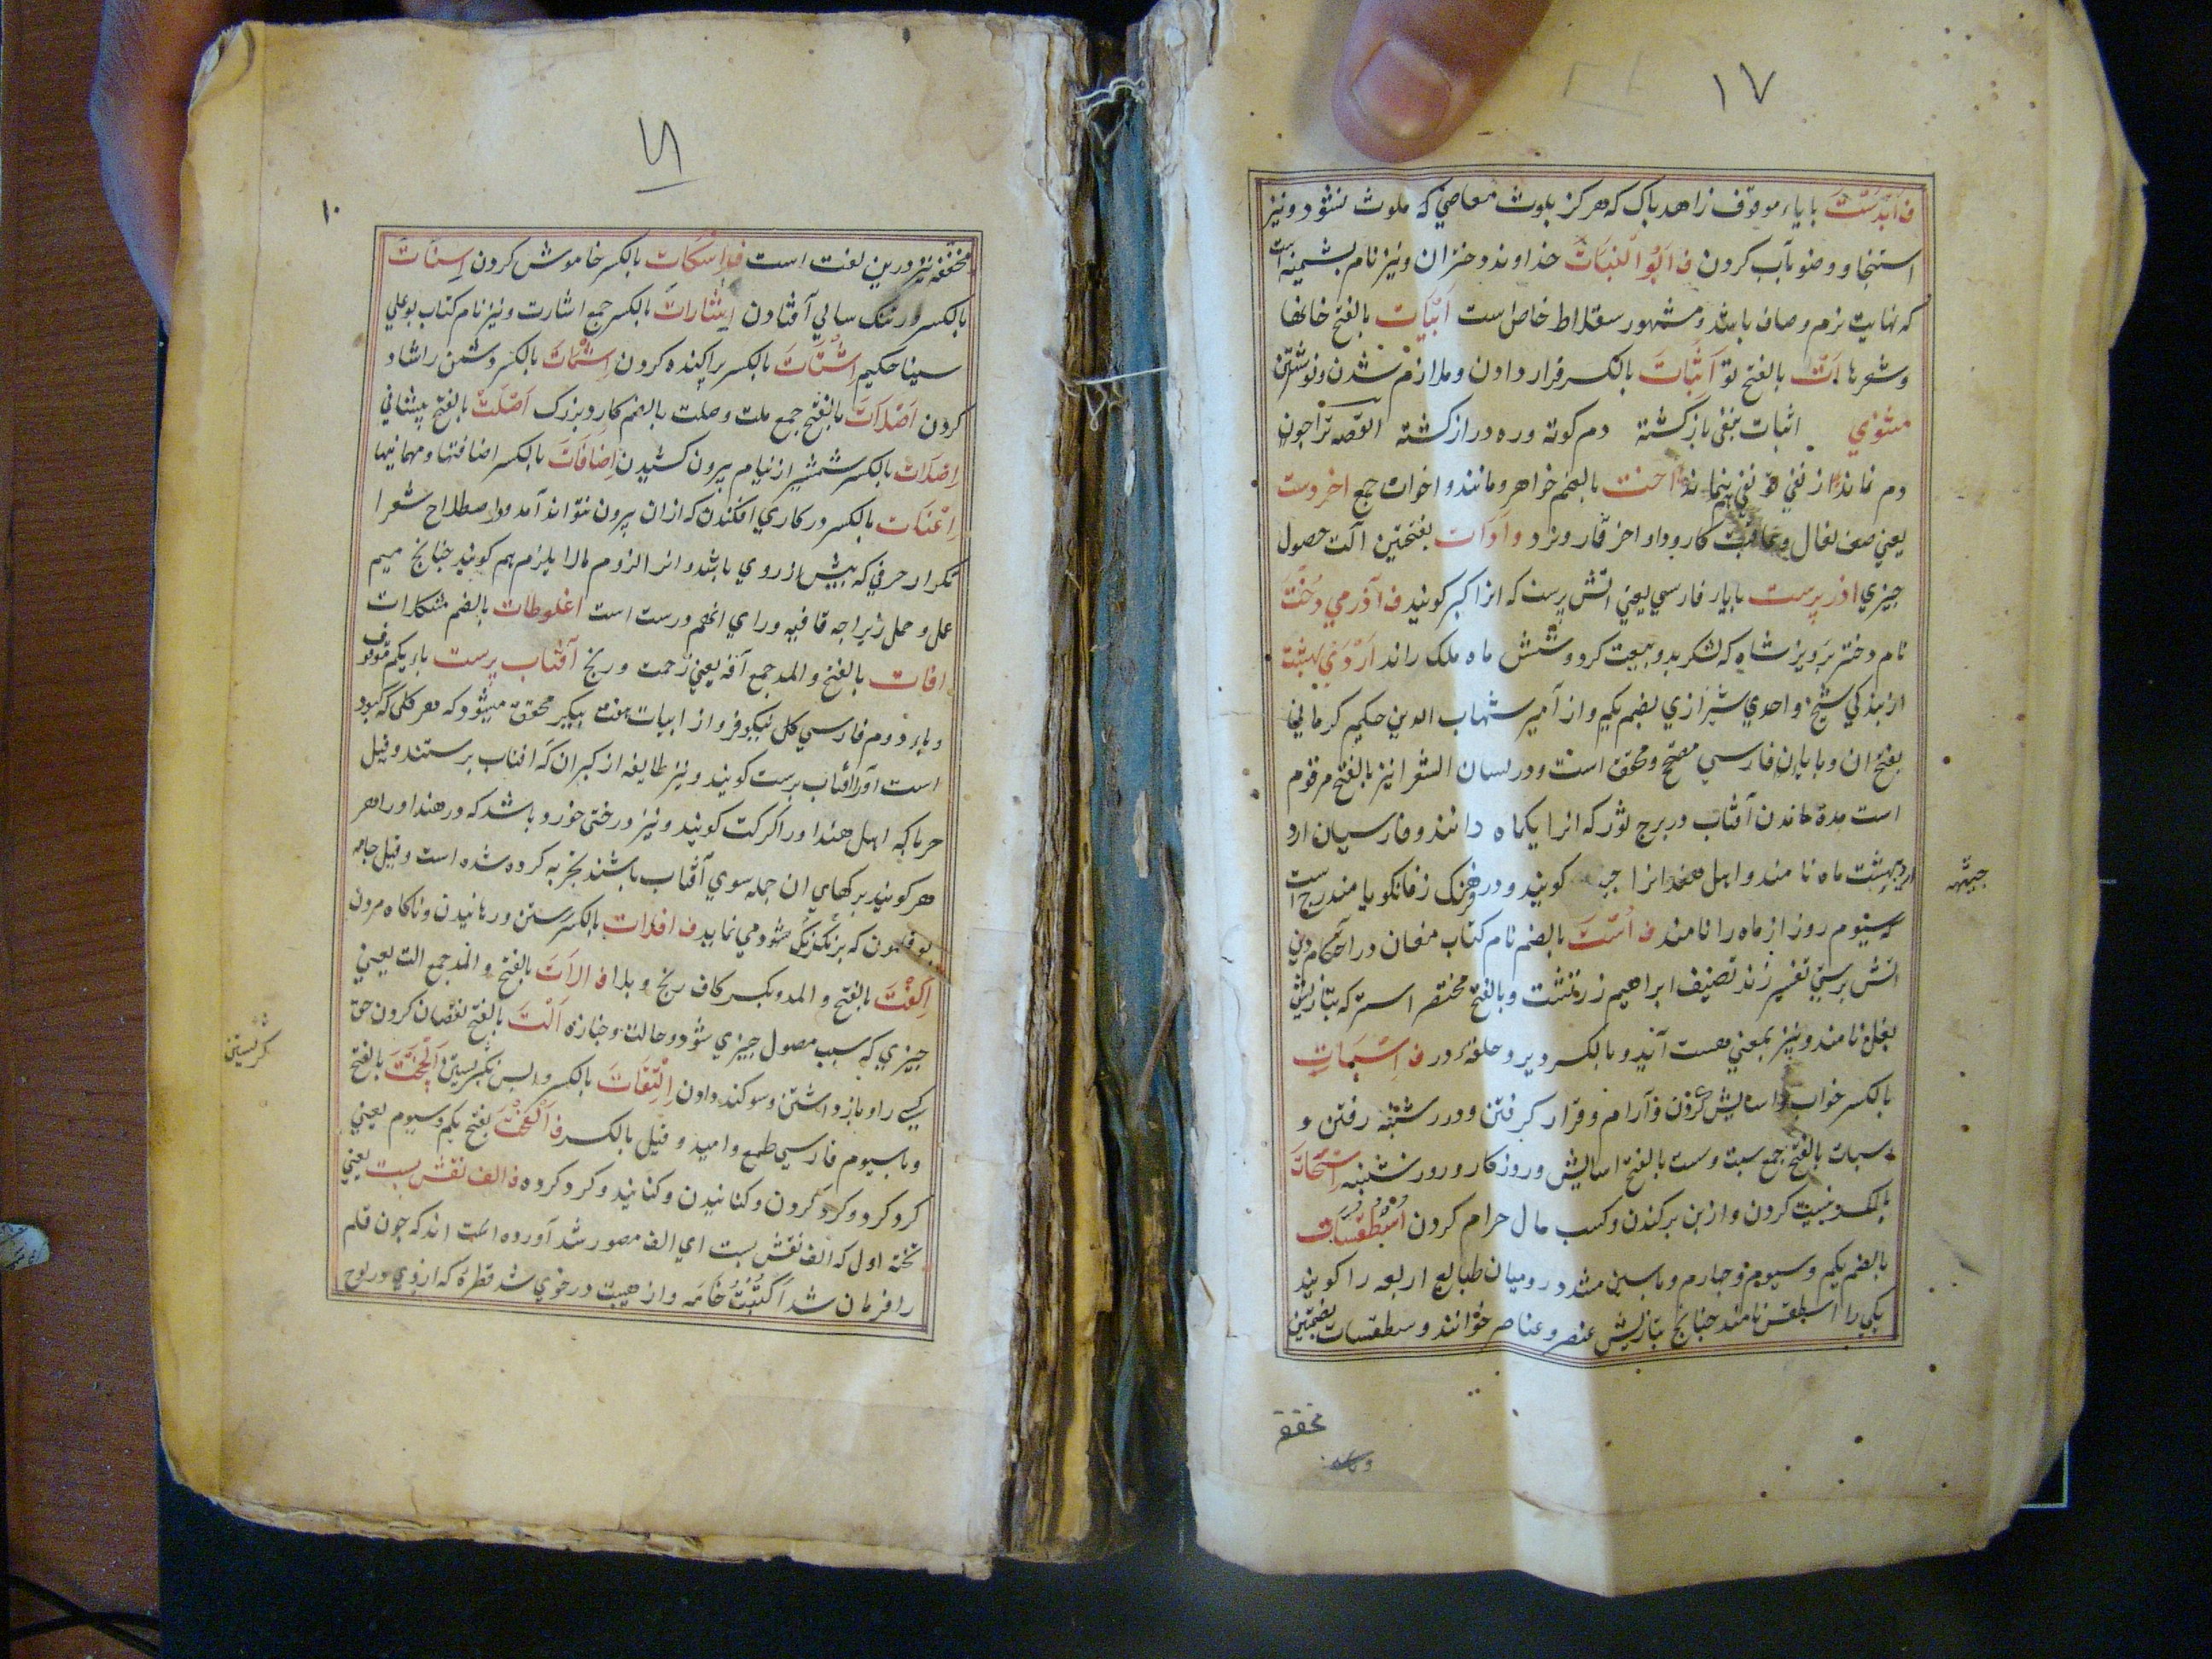 ۱۷
ف آبدست با باء موقوف زاهد پاک که هرگز بلوث معاصی که ملوث نشود و نیز
استنجا و وضو بآب کردن ف ابو البنات خداوند دختران و نیز نام پشمینه است
که نهایت نرم و صاف باشد و مشهور سقلاط خاص است ابیات بالفتح خانها
و شعرها ات بالفتح تو اثبات بالکسر قرار دادن و ملازم شدن و نوشتن
مثنوی اثبات بنفی باز گشته دم کوته و ره دراز گشته القصه ترا چون
دم نماند از نفی نفی بماند اخت بالضم خواهر و مانند و اخوات جمع اخر دست
یعنی صف نعال و عاقبت کار و داو اخر قمار و نرد وادات بفتحتین آلت حصول
چیزی اذر پرست با پاء فارسی یعنی آتش پرست که انرا کبر کویند ف آذرمی دخت
نام دختر پرویز شاه که لشکر بدو بیعت کرد و شش ماه ملک راند اردی بهشت
از بندکی شیخ واحدی شیرازی بضم یکم و از امیر شهاب الدین حکیم کرمانی
بفتح ان و با باء فارسی مصحح و محقق است و در لسان الشعرا نیز بالفتح مرقوم
است مدة ماندن آفتاب در برج ثور که انرا یکماه دانند و فارسیان ارد
اردیبهشت ماه نامند و اهل هند انرا جیته کویند و در فرهنک زفانکویا مندرج است
که سیوم روز از ماه را نامند ف است بالضم نام کتاب مغان در احکام دین
آتش پرستی تفسیر زند تصنیف ابراهیم زرتشت و بالفتح مختصر استر که بتازیش
بغل نامند و نیز بمعنی هست آید و بالکسر دبر و حلقه در ف اسبات
بالکسر خواب و اسایش کردن و آرام و قرار کرفتن و در شنبه رفتن و
سبات بالفتح جمع سبت و سبت بالفتح اسایش و روزکار و روز شنبه اسحات
بالکسر نیست کردن و از بن برکندن و کسب مال حرام کردن اسطقسات
بالضم یکم و سیوم و چهارم و با سین مشدد رومیان طبایع اربعه را کویند
یکی را اسطقس نامند چنانچ بتازیش عنصر و عناصر خوانند و سطقسات بضمتین
جیتهه
مخففه
۱۸
۱۰
مخففه نیز درین لغت است ف اسکات بالکسر خاموش کردن اسنات
بالکسر در تنک سالی افتادن اشارات بالکسر جمع اشارت و نیز نام کتاب بوعلی
سینا حکیم اشتات بالکسر پراکنده کردن اشمات بالکسر دشمن را شاد
کردن اصلات بالفتح جمع صلت و صلت بالضم کارد بزرک اصلت بالفتح پیشانی
اصلات بالکسر شمشیر از نیام بیرون کشیدن اضافات بالکسر اضافتها و مهمانیها
اعنات بالکسر در کاری افکندن که ازان بیرون نتواند آمد و در اصطلاح شعرا
تکرار حرفی که پیش از روی باشد و انرا لزوم مالا یلزم هم کویند چنانچ میم
عمل و حمل زیراچه قافیه ورای انهم درست است اغلوطات بالضم مشکلات
افات بالفتح و المد جمع آفة یعنی زحمت و رنج آفتاب پرست باء یکم موقوف
و باء دوم فارسی کل نیلوفر و از ابیات هفت پیکر محقق میشود که هر کلی که کبود
است آنرا آفتاب پرست کویند و نیز طایفه از کبران که آفتاب پرستند و قیل
حربا که اهل هند او را کرکت کویند و نیز درختی خورد باشد که در هند او را هر
هر کویند برکهای ان جمله سوی آفتاب باشند تجربه کرده شده است و قیل جامه
بوقلمون که برنک رنک میشود می نماید ف افلات بالکسر رستن و رهانیدن و ناکاه مردن
اکفت بالفتح و المد و بکسر کاف رنج و بلا ف الات بالفتح و المد جمع الت یعنی
چیزی که سبب حصول چیزی شود و حالت و جنازه الت بالفتح نقصان کردن حق
کسی را و باز داشتن و سوکند دادن التفات بالکسر وا پس نکریستن الجخت بالفتح
و با سیوم فارسی طمع و امید و قیل بالکسر ف الفخت بفتح یکم و سیوم یعنی
کرد کرد و کرد کردن و کنانیدن و کنانید و کرد کرده ف الف نقش بست یعنی
تخته اول که الف نقش بست ای الف مصور شد آورده است اند که چون قلم
را فرمان شد اکتب خامه و از هیبت در خوی شد قطره که از وی در لوح
کریستن